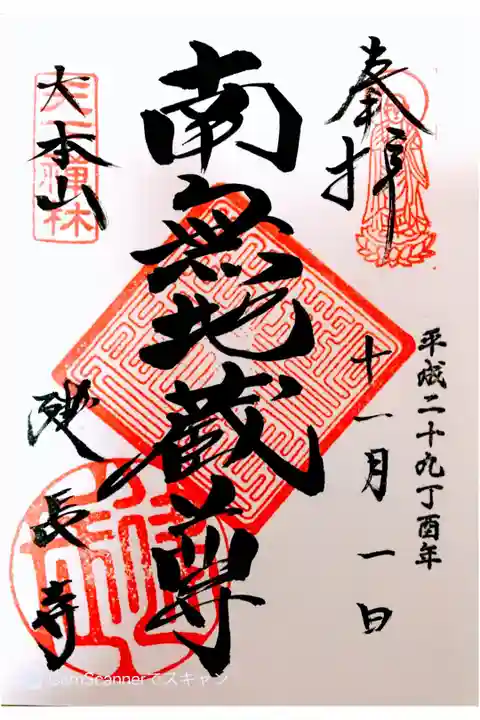 奉拝
平成二十九丁酉年
十一月一日
南無地蔵尊
大本山
建長寺
CamScannerでスキャン